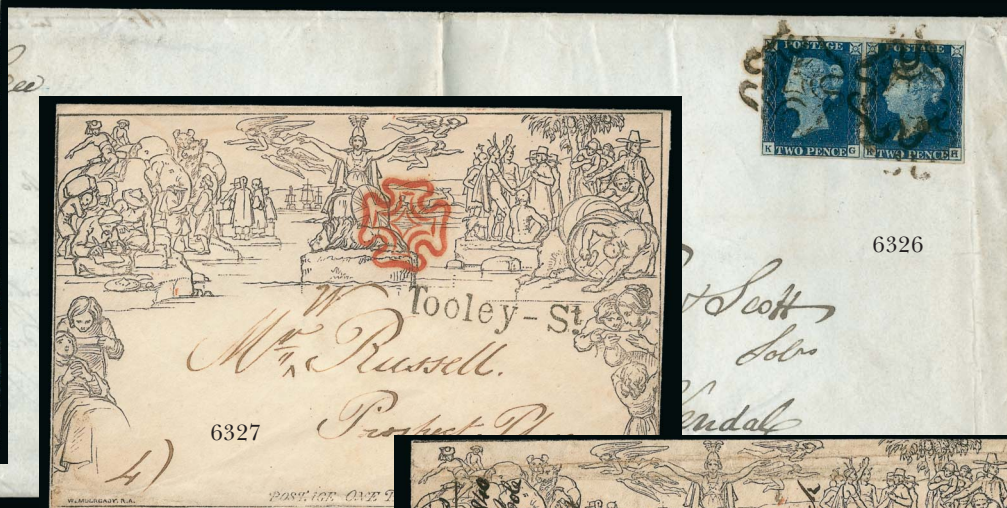 POSTAGE POSTAGE
K G
TWO PENCE TWO PENCE
H
6326
& Scott
Solrs
Kendal
Tooley-St
W
Mr Russell.
Prospect Pl
6327
4)
W. MULREADY. R.A.
POSTAGE ONE